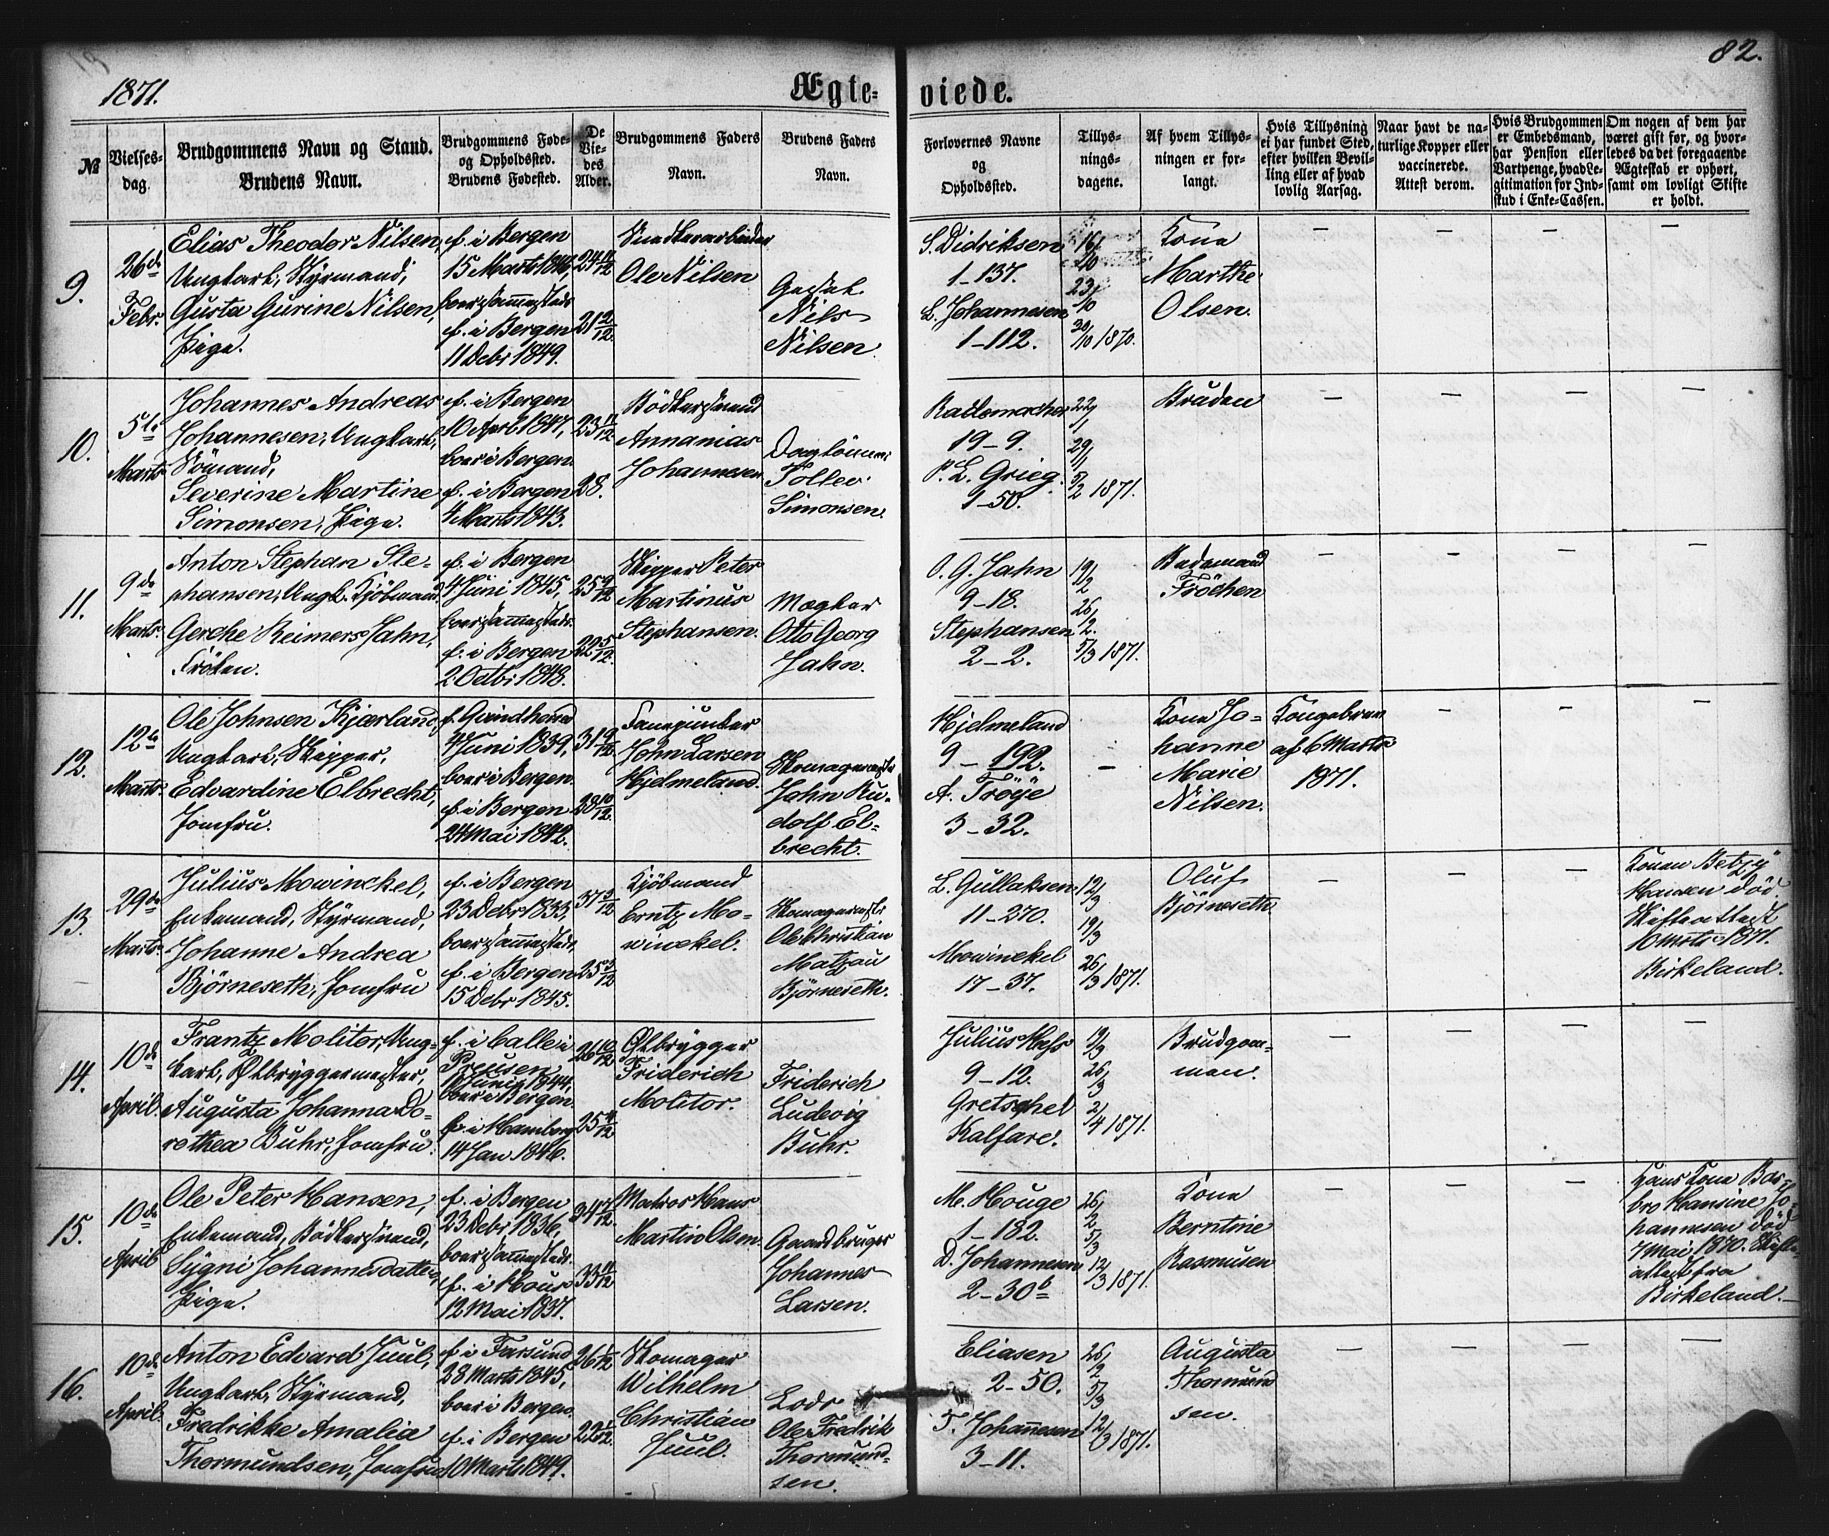 1871.
Ægte- viede.
82.
№
Vielses-
dag.
Brudgommens Navn og Stand.
Brudens Navn.
Brudgommens Føde-
og Opholdssted.
Brudens Fødested.
De
Vie-
des
Alder.
Brudgommens Faders
Navn.
Brudens Faders
Navn.
Forlovernes Navne
og
Opholdssted.
Tillys-
nings-
dagene.
Af hvem Tillys-
ningen er for-
langt.
Hvis Tillysning
ei har fundet Sted,
efter hvilken Bevil-
ling eller af hvad
lovlig Aarsag.
Naar havt de na-
turlige Kopper eller
vaccinerede.
Attest derom.
Hvis Brudgommen
er Embedsmand,
har Pension eller
Vartpenge, hvad Le-
gitimation for Ind-
skud i Enke-Cassen.
Om nogen af dem har
været gift før, og hvor-
ledes da det foregaaende
Ægteskab er ophørt,
samt om lovligt Skifte
er holdt.
9.
26de
Febr.
Elias Theodor Nilsen,
Ungkarl, Styrmand,
Gusta Gurine Nilsen,
Pige.
f. i Bergen
15 Marts 1846,
boer sammesteds
f. i Bergen
11 Debr 1849.
24 11/12
21 2/12.
Snedkerarbeider
Ole Nilsen
Nils
Nilsen
S. Didriksen
1-137.
L. Johannesen
1-112.
16/10
23/10
30/10 1870.
Kone
Marthe
Olsen.
10.
5te
Marts
Johannes Andreas
Johannesen, Ungkarl,
Sømand,
Severine Martine
Simonsen, Pige.
f. i Bergen
10 April 1847,
boer i Bergen.
f. i Bergen
4 Marts 1843.
23 11/12
28.
Bødkersvend
Annanias
Johannesen
Tollev
Simonsen.
Rademacher
19-9.
P. L. Grieg.
1-50.
22/1
29/1
5/2 1871.
Bruden
11.
9de
Marts.
Anton Stephan Ste-
phansen, Ungk. Kjøbmand.
Gerche Reimers Jahn,
Frøken.
f. i Bergen
4 Juni 1845,
boer sammesteds.
f. i Bergen
2 Octbr 1848.
25 9/12
22 5/12.
Skipper Peter
Martinus
Stephansen.
Mægler
Otto Georg
Jahn.
O. G. Jahn
9-18.
Stephansen
2-2.
19/2
26/2.
5/3 1871.
12.
12te
Marts.
Ole Johnsen Kjærland,
Ungkarl, Skipper,
Edvardine Elbrecht,
Jomfru.
f.
7 Juni 1839,
boer i Bergen.
f. i Bergen
24 Mai 1842.
31 9/12
28 10/12.
John Larsen
Hjelmeland.
Skomagermester
John Ru-
dolf El-
brecht.
Hjelmeland
9-192.
A. Trøye
3-32.
Kone Jo-
hanne
Marie
Nilsen.
Kongebrev
af 6 Marts
1871.
13.
29de
Marts.
Julius Mowinckel,
Enkemand, Styrmand,
Johanne Andrea
Bjørneseth, Jomfru
f. i Bergen
23 Debr 1833,
boer sammesteds,
f. i Bergen
15 Debr 1845.
37 3/12
25 3/12
Kjøbmand
Erntz Mo-
winckel.
Skomagermester
Ole Christian
Matzau
Bjørneseth.
L. Gullaksen.
11-270.
Mowinckel
17-37.
12/3
19/3
26/3 1871.
Oluf
Bjørneseth
Konen Betzy
Hansen død
Skifteattest
10 Marts 1871.
Birkeland.
14.
10de
April.
Frantz Molitor, Ung-
karl, Ølbryggermester,
Augusta Johanna Do-
rothea Buhr, Jomfru.
f. i Calle i
Preusen
1844,
boer i Bergen.
f. i Hamborg
14 Jan 1846.
26 10/12
Ølbrygger
Friderich
Molitor.
Friderich
Ludevig
Buhr.
Julius Hess
9-12.
Gretschel
Kalfare.
19/3
26/3
2/4 1871.
Brudgom-
men.
15.
10de
April
Ole Peter Hansen,
Enkemand, Bødkersvend,
Sygni Johannesdatter,
Pige.
f. i Bergen
23 Debr 1836,
boer sammesteds.
f. i Hous
12 Mai 1837.
33 11/12
Matros Hans
Martin Olsen.
Gaardbruger
Johannes
Larsen.
M. Houge
1-182.
D. Johannesen
2-30b
26/2
5/3
12/3 1871.
Kone
Berntine
Rasmusen
Hans Kone Bar-
bro Hansine Jo-
hannesen død
7 Mai 1870. Skifte-
attest fra
Birkeland.
16.
10de
April.
Anton Edvard Juul,
Ungkarl, Styrmand,
Fredrikke Amalia
Thormundsen, Jomfru
f. i Farsund
28 Marts 1845,
boer i Bergen.
f. i Bergen
10 Marts 1849.
26 1/12
22 1/12.
Skomager
Wilhelm
Christian
Juul.
Lods
Ole Fredrik
Thormund-
sen.
Eliasen
2-50.
T. Johannesen
3-11.
26/2
5/3
12/3 1871.
Augusta
Thormund
sen.